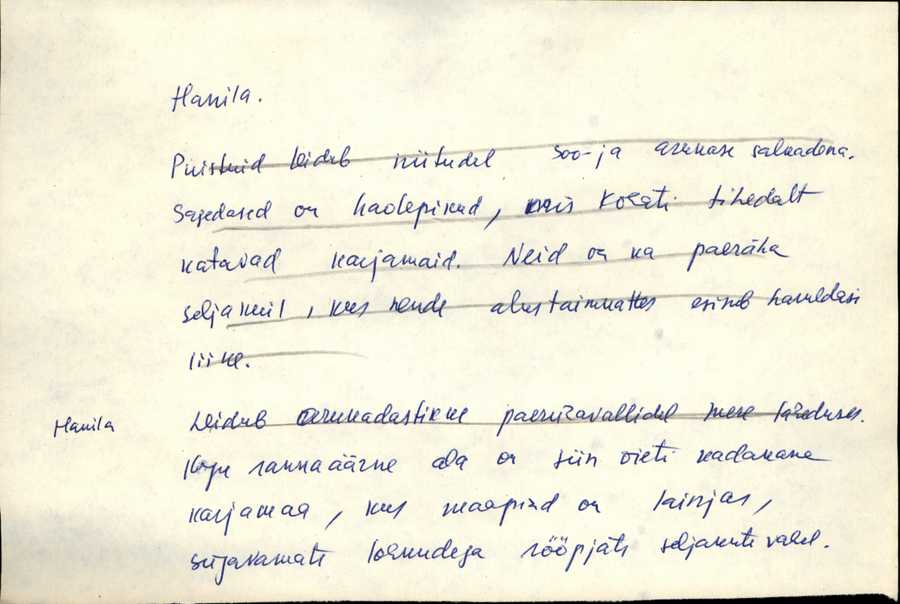 Hanila.
Puistuid leidub niitudel soo- ja arukase salkadena.
Sagedased on kadepikud, mis kohati tihedalt
katavad karjamaid. Neid on ka paeräha
seljakuil, kus nende alustaimmattes esineb haruldasi
liike.
Hanila
Leidub arukadastikke paerisavallidel mere läheduses.
Kogu rannaäärne ala on siin õieti kadakane
karjamaa, kus maapind on lainjas,
sügavamate lohkudega rööpjate seljakute vahel.